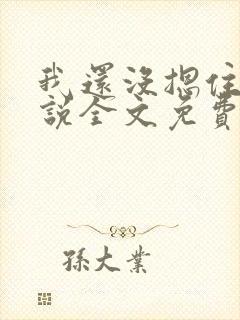 我還沒摁住
說全文免費
孫大業